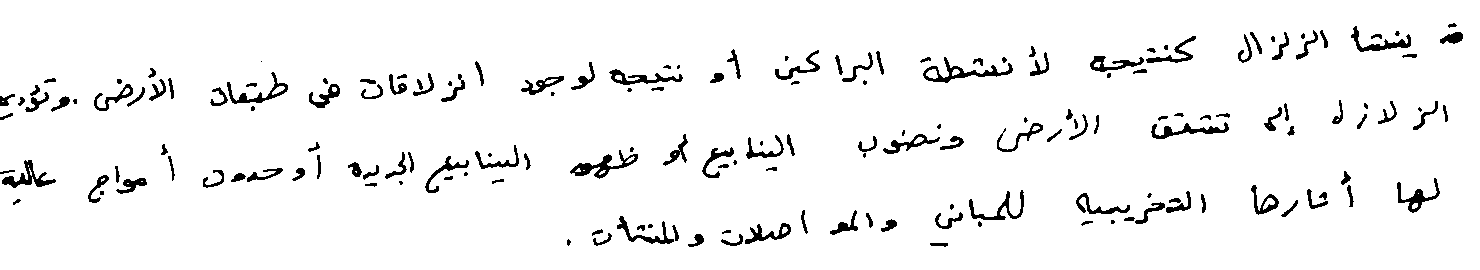 قد ينشأ الزلزال كنتيجه لأنشطة البراكين أو نتيجه لوجود انزلاقات في طبقات الأرض . وتؤدي
الزلازل إلى تشقق الأرض ونضوب الينابيع أو ظهور الينابيع الجديده أو حدوث أمواج عالية
لها أثارها التخريبيه للمباني والمواصلات والمنشآت .